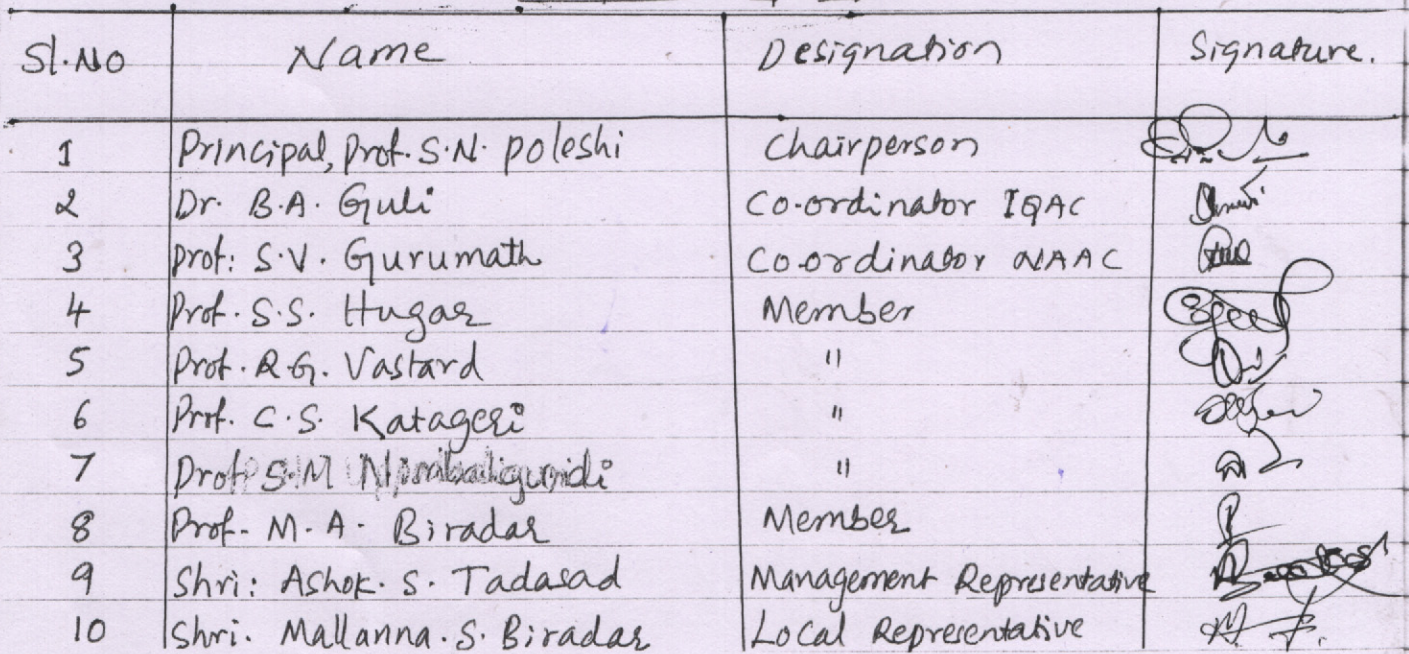 Sl.No Name Designation Signature.
1 Principal, Prof. S.N. Poleshi Chairperson
2 Dr. B.A. Guli Co-ordinator IQAC
3 Prof: S.V. Gurumath Co-ordinator NAAC
4 Prof. S.S. Hugar Member
5 Prof. R.G. Vastard "
6 Prof. C.S. Katageri "
7 Prof. S.M "
8 Prof. M.A. Biradar Member
9 Shri: Ashok. S. Tadasad Management Representative
10 Shri. Mallanna. S. Biradar Local Representative